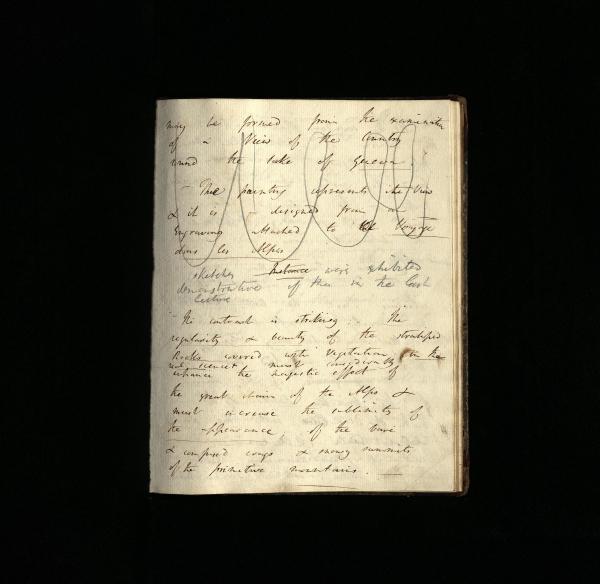 may be formed from the examination
of a View of the Country
round the lake of Geneva.
— This painting represents this View
& it is designed from an
Engraving attached to the Voyage
dans les Alpes
sketches Instance were exhibited
demonstrative of this in the last
lecture
The contrast is striking. The
regularity & beauty of the stratified
Rocks covered with vegetation in the
most considerably
enhance the majestic effect of
the great chain of the Alps &
must increase the sublimity of
the appearance of the bare
& composed crags & snowy summits
of the primitive mountains. —